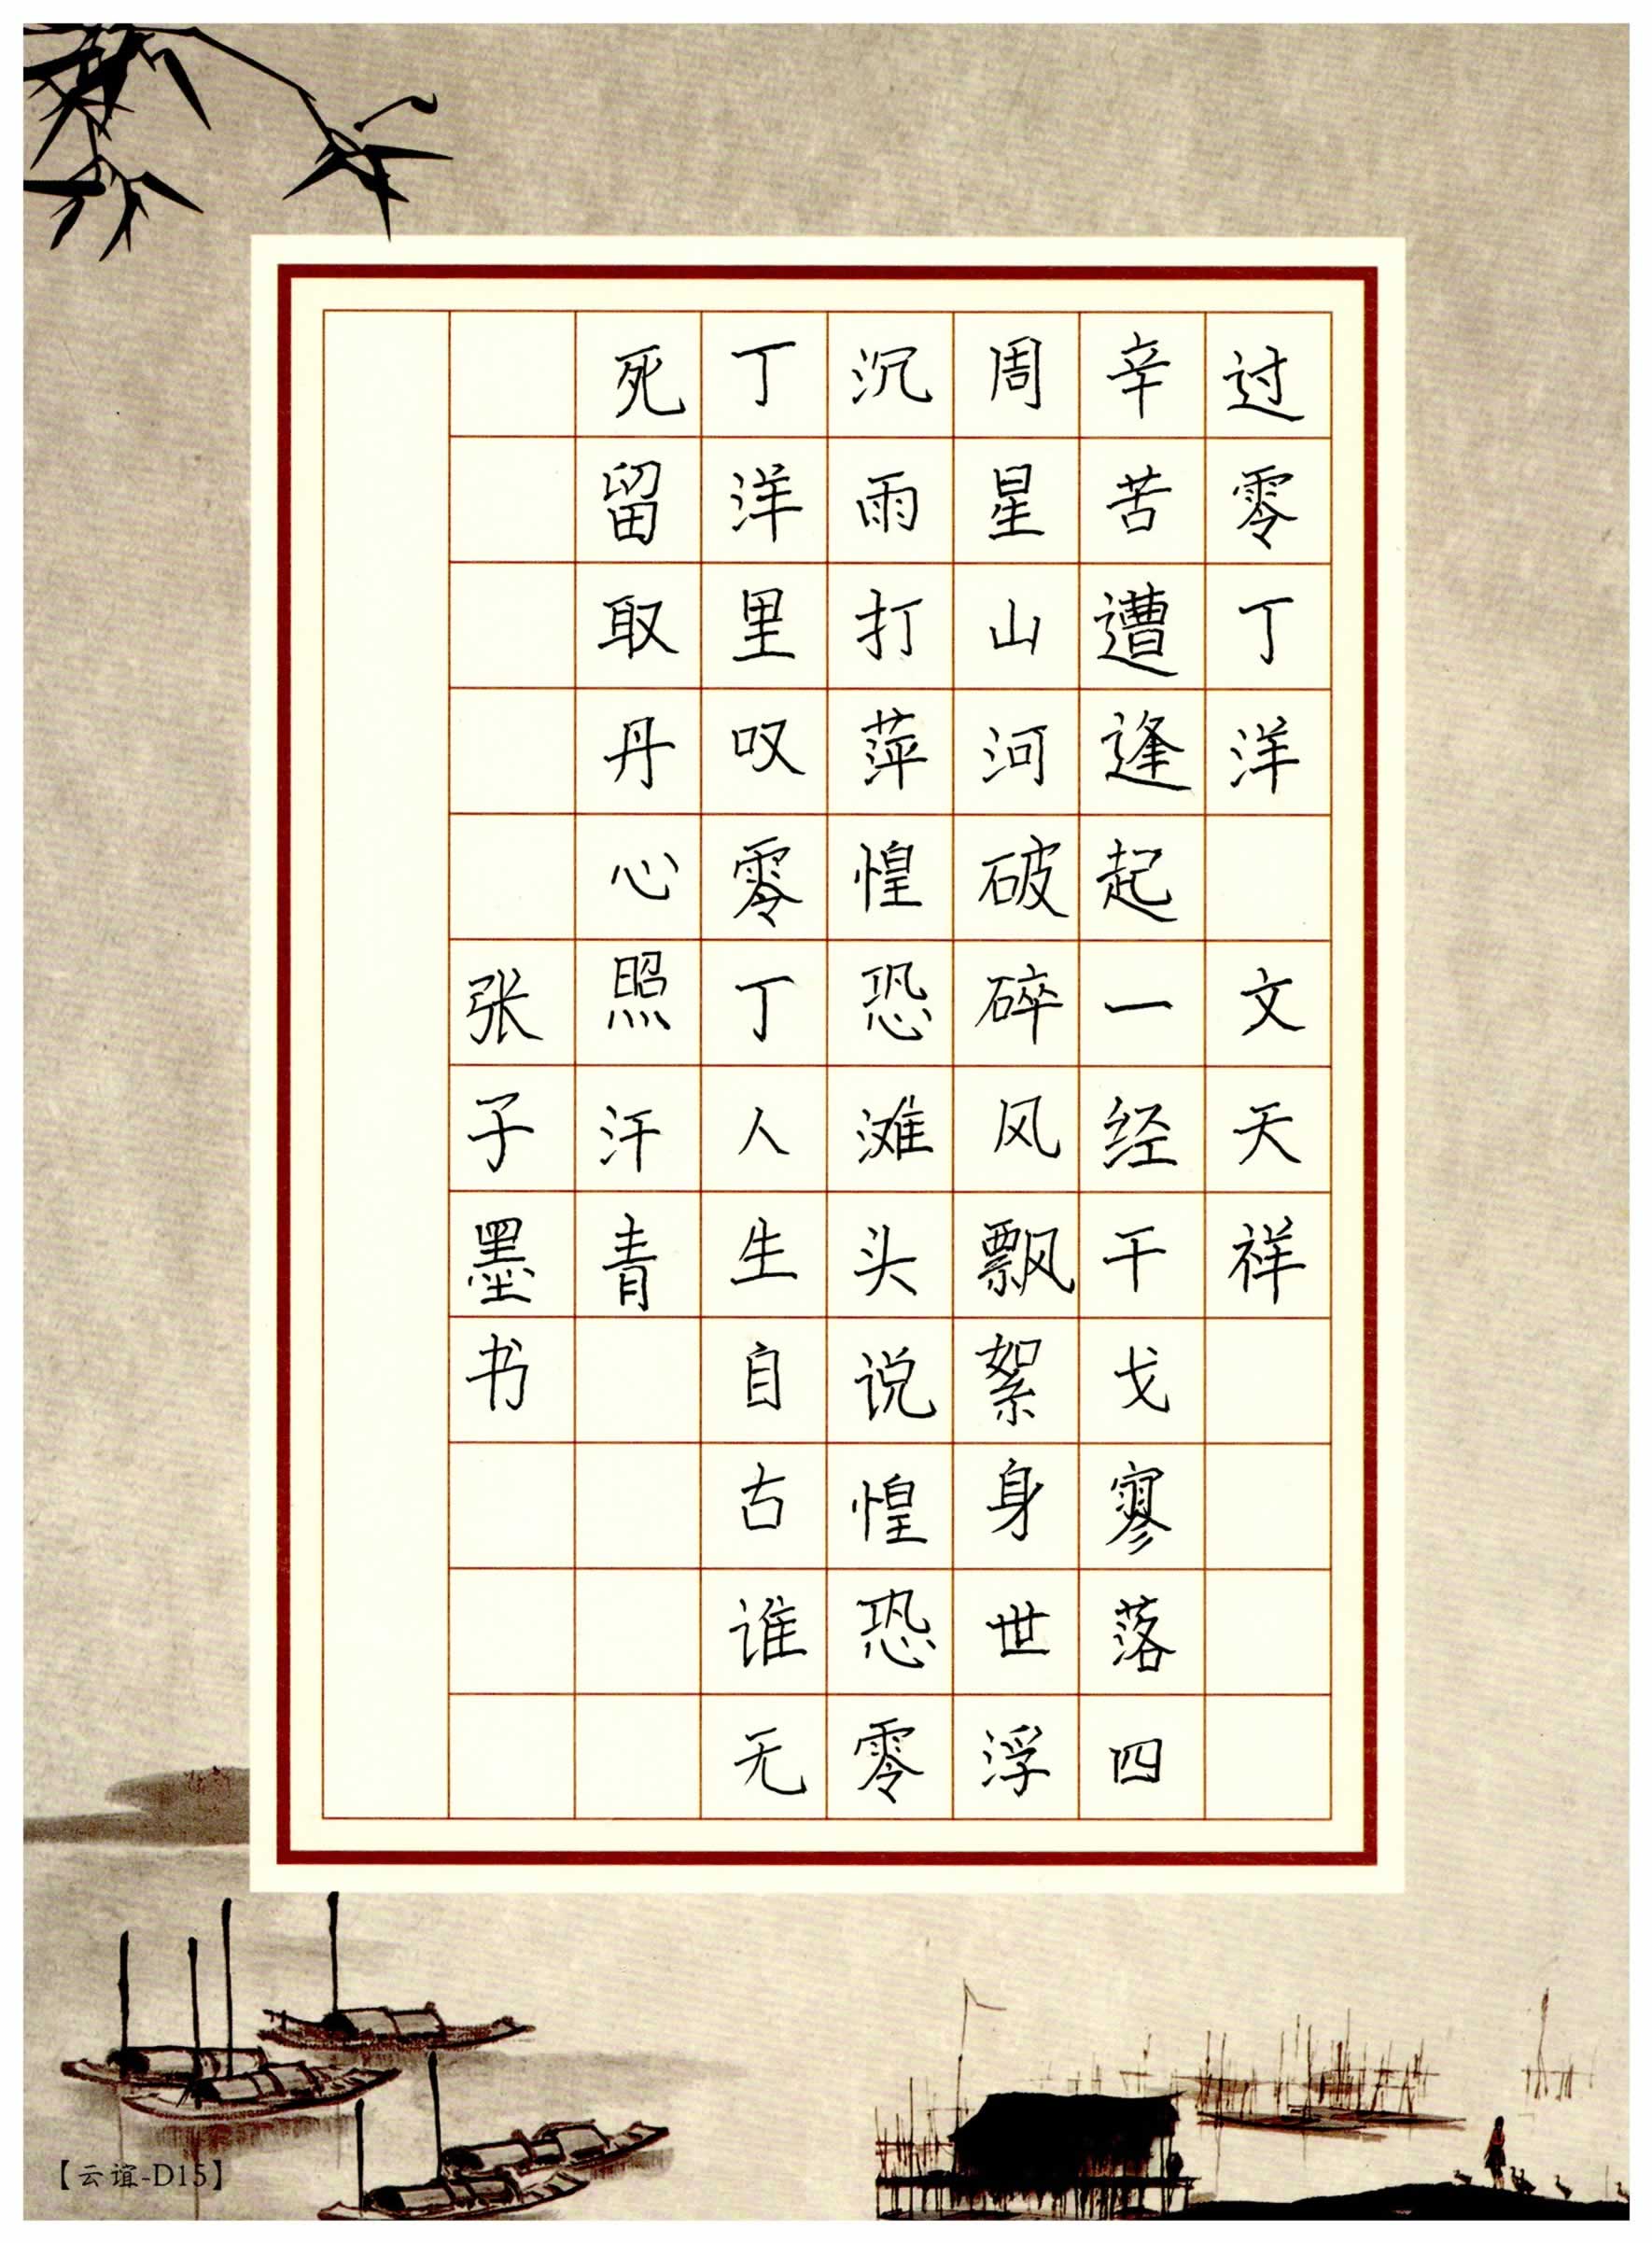 过零丁洋 文天祥
辛苦遭逢起一经干戈寥落四
周星山河破碎风飘絮身世浮
沉雨打萍惶恐滩头说惶恐零
丁洋里叹零丁人生自古谁无
死留取丹心照汗青
张子墨书
【云谊-D15】